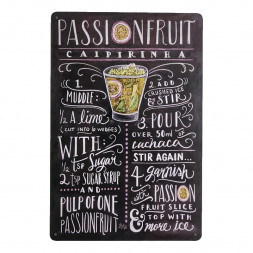 PASSIONFRUIT
CAIPIRINHA
1.
MUDDLE:
1/2 a lime
(CUT INTO 6 WEDGES)
WITH:
1/2 TSP Sugar
2 TSP SUGAR SYRUP
AND
PULP OF ONE
PASSIONFRUIT
2. ADD
CRUSHED ICE
& STIR
3. POUR
OVER 50ml of
cachaca
STIR AGAIN...
4 garnish
with PASSION
FRUIT SLICE,
& TOP WITH
more ice